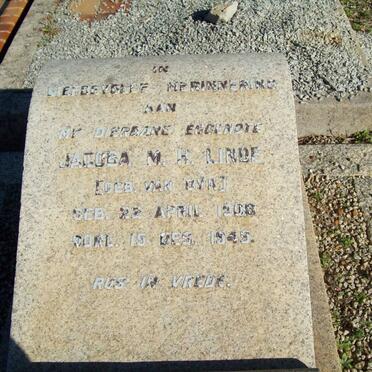 IN
LIEFDEVOLLE HERINNERING
AAN
MY DIERBARE EGGENOTE
JACOBA M. H. LINDE
GEB. 22 APRIL 1908
OORL. 15 DES. 1945.
RUS IN VREDE.